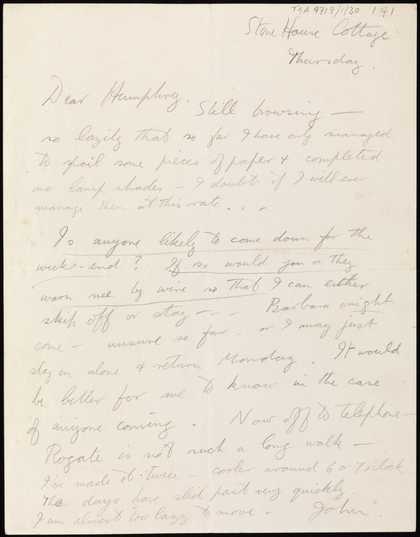 TGA 9712/1/30 1/41
Stone House Cottage
Thursday.
Dear Humphrey.
Still browsing —
so lazily that so far I have only managed
to spoil some pieces of paper & completed
no lamp shades — I doubt if I will ever
manage them at this rate. . .
Is anyone likely to come down for the
week-end? If so would you or they
warn me by wire so that I can either
skip off or stay - - - Barbara might
come — unsure so far. or I may just
stay on alone & return Monday. It would
be better for me to know in the case
of anyone coming. Now off to telephone —
Rogate is not such a long walk —
I've made it twice — cooler around 6 or 7 o'clock
The days have slid past very quickly.
I am almost too lazy to move. John.